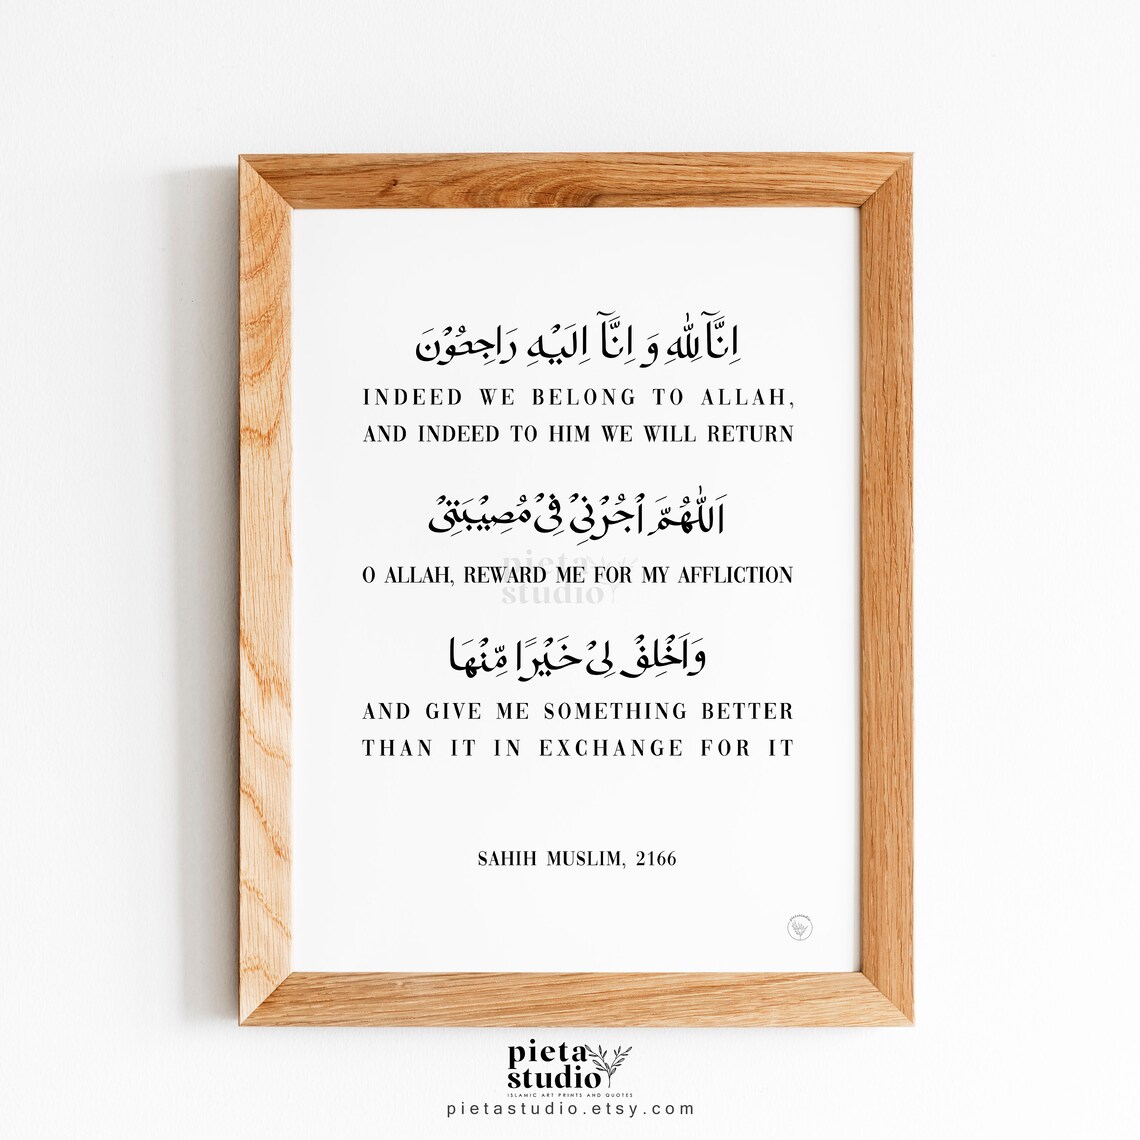 اِنَّآ لِلّٰهِ وَ اِنَّآ اِلَيْهِ رَاجِعُوْنَ
INDEED WE BELONG TO ALLAH,
AND INDEED TO HIM WE WILL RETURN
اَللّٰهُمَّ اْجُرْنِيْ فِيْ مُصِيْبَتِيْ
O ALLAH, REWARD ME FOR MY AFFLICTION
pieta
studio
وَاَخْلِفْ لِيْ خَيْرًا مِّنْهَا
AND GIVE ME SOMETHING BETTER
THAN IT IN EXCHANGE FOR IT
SAHIH MUSLIM, 2166
pietastudio
pieta
studio
ISLAMIC ART PRINTS AND QUOTES
pietastudio.etsy.com